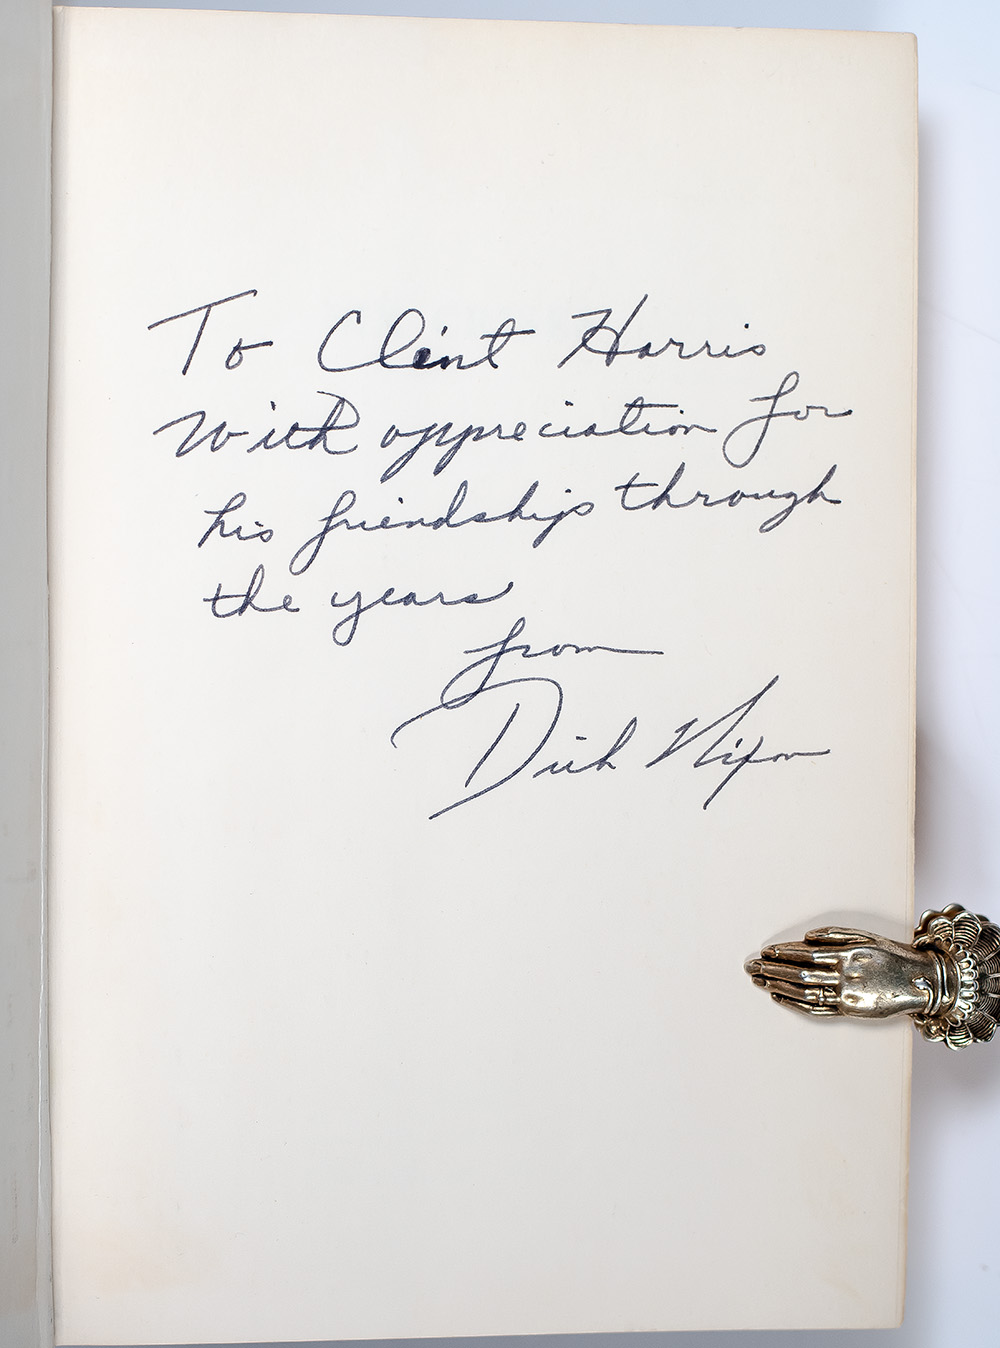 To Clint Harris
With appreciation for
his friendship through
the years
from
Dick Nixon